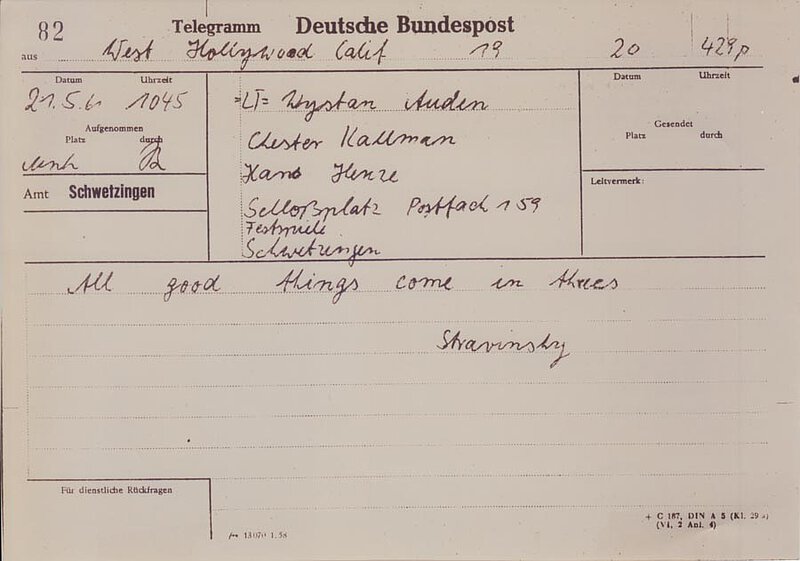 82 Telegramm Deutsche Bundespost
aus West Hollywood Calif 19 20 429p
Datum Uhrzeit
21.5.61 1045
Aufgenommen
Platz durch
Amt Schwetzingen
=LT= Wystan Auden
Chester Kallman
Hans Henze
Schloßplatz Postfach 159
Festspiele
Schwetzingen
Datum Uhrzeit
Gesendet
Platz durch
Leitvermerk:
All good things come in threes
Stravinsky
Für dienstliche Rückfragen
13 070 1. 58
+ C 187, DIN A 5 (Kl. 29 a)
(VI, 2 Anl. 4)